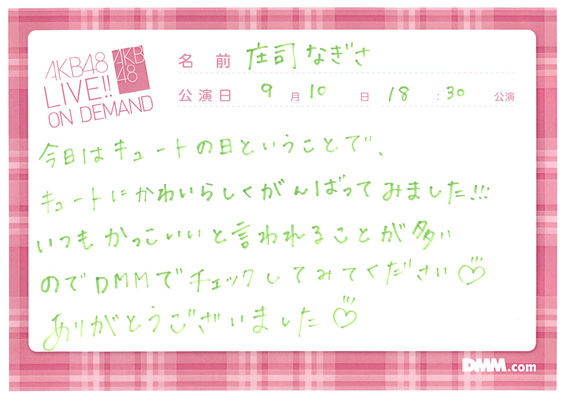 AKB48
LIVE!!
ON DEMAND
AKB
48
名前 庄司なぎさ
公演日 9月10日 18:30公演
今日はキュートの日ということで、
キュートにかわいらしくがんばってみました!!!
いつもかっこいいと言われることが多い
のでDMMでチェックしてみてください♡
ありがとうございました♡
DMM.com